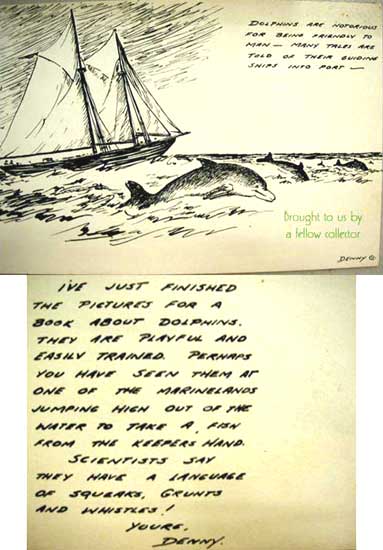 DOLPHINS ARE NOTORIOUS
FOR BEING FRIENDLY TO
MAN — MANY TALES ARE
TOLD OF THEIR GUIDING
SHIPS INTO PORT —
Brought to us by
a fellow collector
DENNY ©
I'VE JUST FINISHED
THE PICTURES FOR A
BOOK ABOUT DOLPHINS.
THEY ARE PLAYFUL AND
EASILY TRAINED. PERHAPS
YOU HAVE SEEN THEM AT
ONE OF THE MARINELANDS
JUMPING HIGH OUT OF THE
WATER TO TAKE A FISH
FROM THE KEEPERS HAND.
SCIENTISTS SAY
THEY HAVE A LANGUAGE
OF SQUEAKS, GRUNTS
AND WHISTLES!
YOURS,
DENNY.